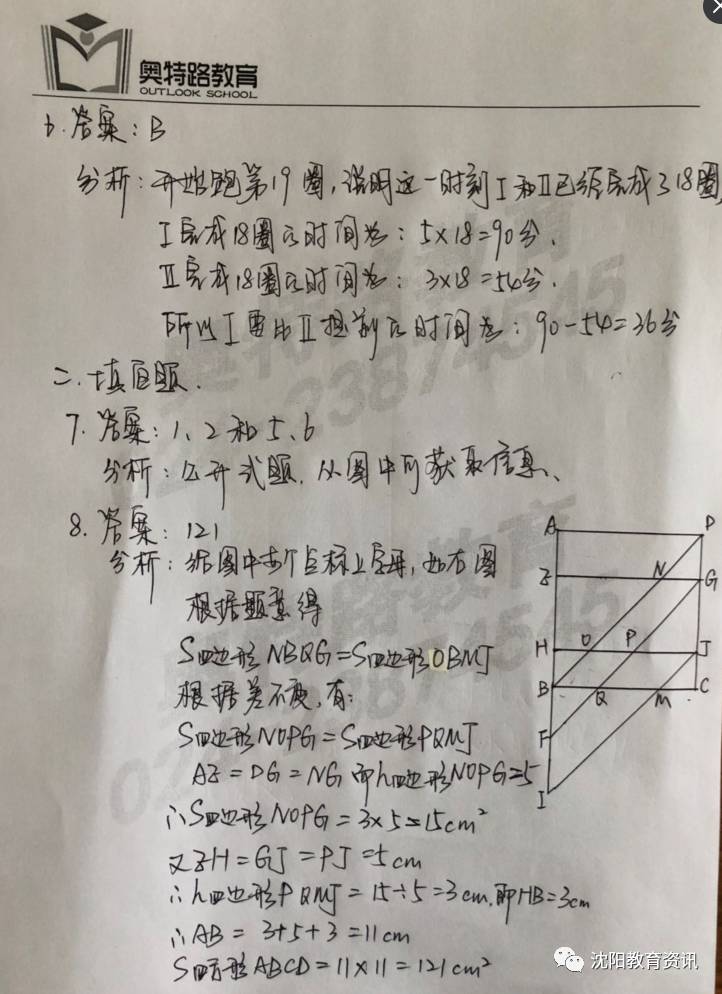 奥特路教育
OUTLOOK SCHOOL
6. 答案：B
分析：开始跑第19圈，说明这一时刻I和II已经完成了18圈，
I完成18圈的时间为：5×18=90分.
II完成18圈的时间为：3×18=54分.
所以I要比II提前的时间为：90-54=36分
二.填空题.
7. 答案：1、2和5、6
分析：公开式题，从图中可获取信息、
8. 答案：121
分析：给图中每个点标上字母，如右图
根据题意得
S四边形NBQG=S四边形OBMJ
根据差不变，有：
S四边形NOPG=S四边形PQMJ
AZ=DG=NG 而h四边形NOPG=5
∴S四边形NOPG=3×5=15cm²
又ZH=GJ=PJ=5cm
∴h四边形PQMJ=15÷5=3cm.即HB=3cm
∴AB=3+5+3=11cm
S正方形ABCD=11×11=121cm²
A D
Z N G
H O P J
B Q M C
F
I
沈阳教育资讯